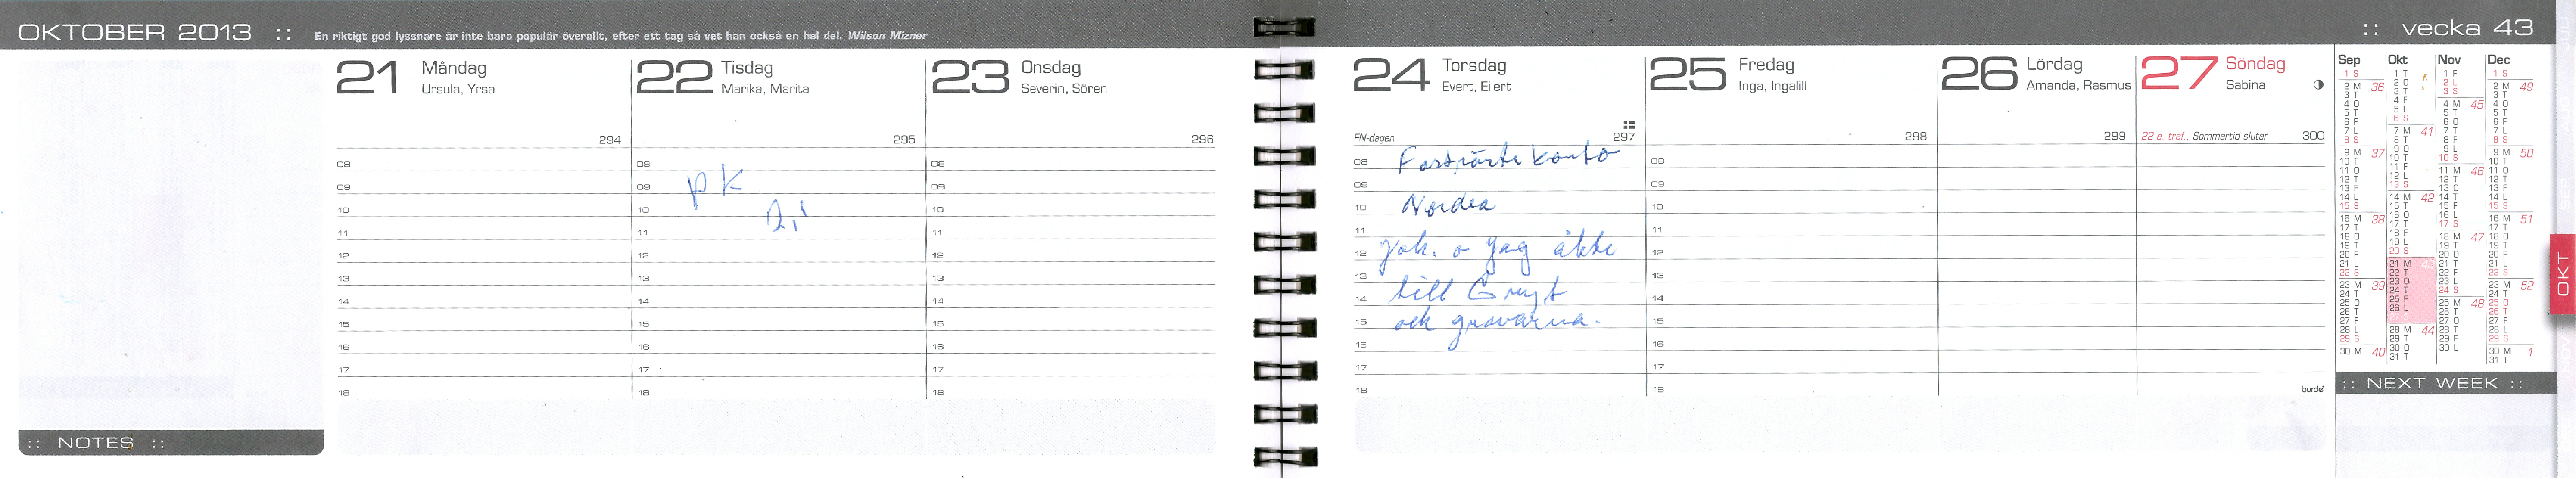 OKTOBER 2013 :: En riktigt god lyssnare är inte bara populär överallt, efter ett tag så vet han också en hel del. Wilson Mizner
:: NOTES ::
21 Måndag
Ursula, Yrsa
294
08
09
10
11
12
13
14
15
16
17
18
22 Tisdag
Marika, Marita
295
08
09 PK
10
11
12
13
14
15
16
17
18
23 Onsdag
Severin, Sören
296
08
09
10
11
12
13
14
15
16
17
18
:: vecka 43
24 Torsdag
Evert, Eilert
FN-dagen 297
08 konto
09
10 Nordea
11
12 o jag åkte
13
14 till Gryt
15 och gravarna.
16
17
18
25 Fredag
Inga, Ingalill
298
08
09
10
11
12
13
14
15
16
17
18
26 Lördag
Amanda, Rasmus
299
27 Söndag
Sabina
22 e. tref., Sommartid slutar 300
burde
Sep Okt Nov Dec
1 S 1 T 1 F 1 S
2 M 36 2 O 2 L 2 M 49
3 T 3 T 3 S 3 T
4 O 4 F 4 M 45 4 O
5 T 5 L 5 T 5 T
6 F 6 S 6 O 6 F
7 L 7 M 41 7 T 7 L
8 S 8 T 8 F 8 S
9 M 37 9 O 9 L 9 M 50
10 T 10 T 10 S 10 T
11 O 11 F 11 M 46 11 O
12 T 12 L 12 T 12 T
13 F 13 S 13 O 13 F
14 L 14 M 42 14 T 14 L
15 S 15 T 15 F 15 S
16 M 38 16 O 16 L 16 M 51
17 T 17 T 17 S 17 T
18 O 18 F 18 M 47 18 O
19 T 19 L 19 T 19 T
20 F 20 S 20 O 20 F
21 L 21 M 43 21 T 21 L
22 S 22 T 22 F 22 S
23 M 39 23 O 23 L 23 M 52
24 T 24 T 24 S 24 T
25 O 25 F 25 M 48 25 O
26 T 26 L 26 T 26 T
27 F 27 O 27 F
28 L 28 M 44 28 T 28 L
29 S 29 T 29 F 29 S
30 M 40 30 O 30 L 30 M 1
31 T 31 T
:: NEXT WEEK ::
OKT